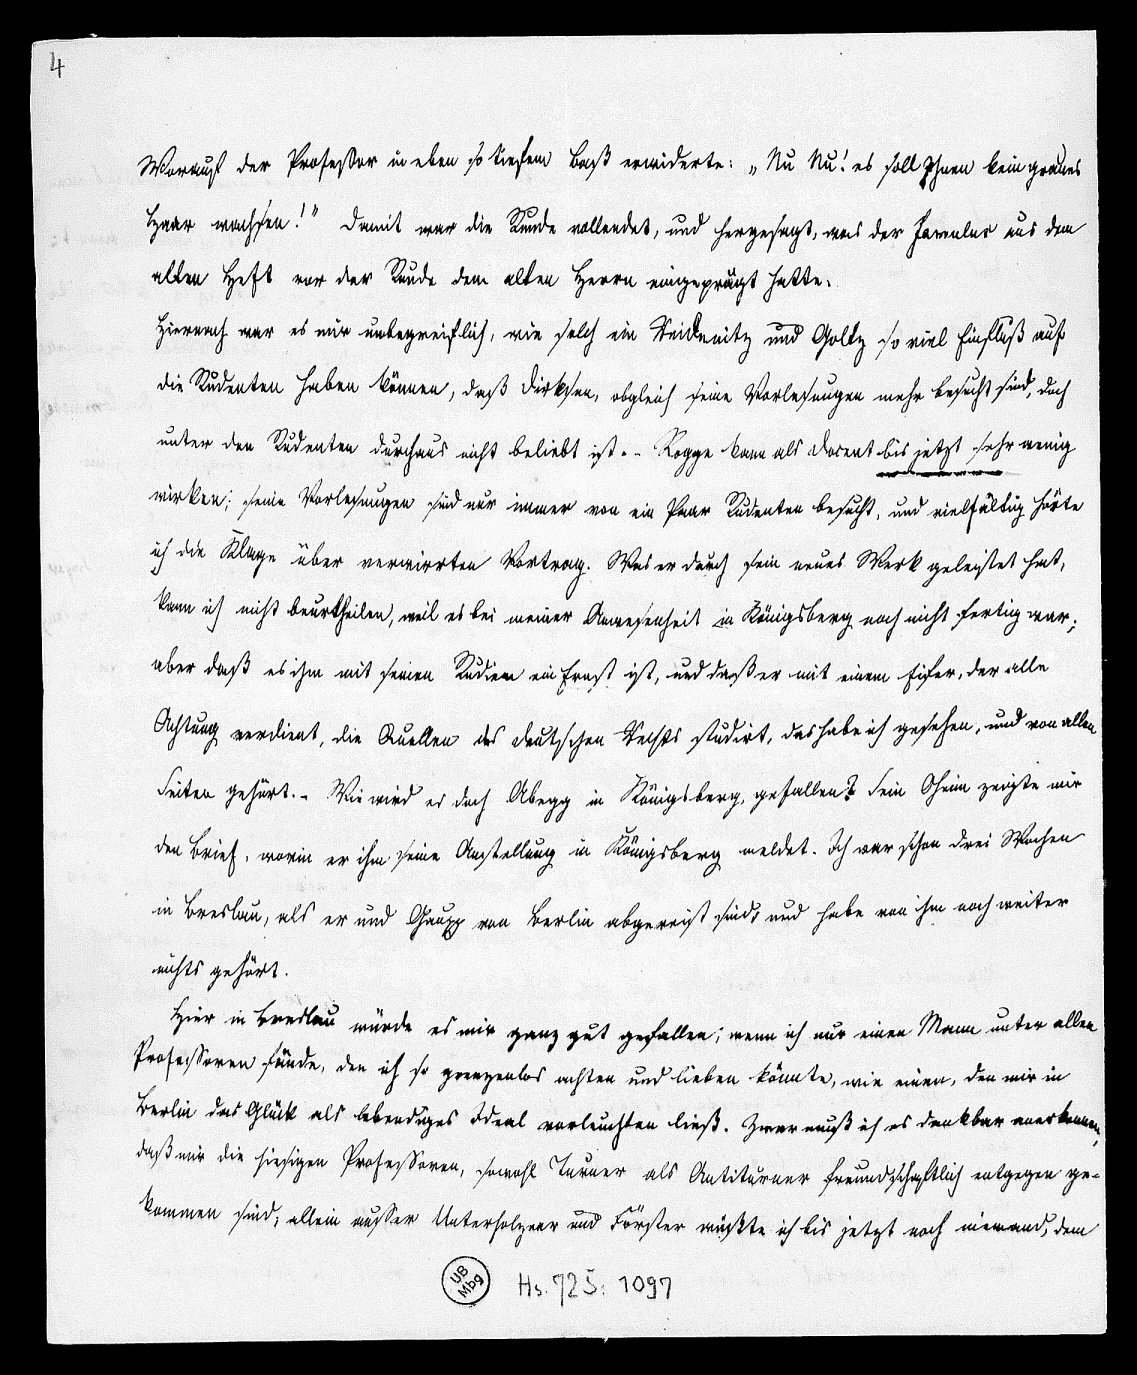 4
Worauf der Professor in eben so tiefem Baß erwiderte: „Nu Nu! es soll Ihnen kein graues
Haar wachsen!" Damit war die Runde vollendet, und hergesagt, was der Famulus aus dem
alten Heft vor der Runde dem alten Herrn eingeprägt hatte.
Hiernach war es mir unbegreiflich, wie solch ein Reidenitz und Goltz so viel Einfluß auf
die Studenten haben können, daß Dirksen, obgleich seine Vorlesungen mehr besucht sind, doch
unter den Studenten durchaus nicht beliebt ist. - Rogge kann als Docent bis jetzt sehr wenig
wirken; seine Vorlesungen sind nur immer von ein Paar Studenten besucht, und vielfältig hörte
ich die Klage über verwirrten Vortrag. Was er durch sein neues Werk geleistet hat,
kann ich nicht beurtheilen, weil es bei meiner Anwesenheit in Königsberg noch nicht fertig war;
aber daß es ihm mit seinen Studien ein Ernst ist, und daß er mit einem Eifer, der alle
Achtung verdient, die Quellen des deutschen Rechts studirt, das habe ich gesehen, und von allen
Seiten gehört. - Wie wird es doch Abegg in Königsberg gefallen? Sein Oheim zeigte mir
den Brief, worin er ihm seine Anstellung in Königsberg meldet. Ich war schon drei Wochen
in Breslau, als er und Gaupp von Berlin abgereist sind, und habe von ihm noch weiter
nichts gehört.
Hier in Breslau würde es mir ganz gut gefallen; wenn ich nur einen Mann unter allen
Professoren fände, den ich so grenzenlos achten und lieben könnte, wie einen, den mir in
Berlin das Glück als lebendiges Ideal vorleuchten ließ. Zwar muß ich es dankbar anerkennen,
daß mir die hiesigen Professoren, sowohl Turner als Antiturner freundschaftlich entgegen ge-
kommen sind; allein ausser Unterholzner und Förster wüßte ich bis jetzt noch niemand, dem
UB
Mbg
Hs. 725: 1097